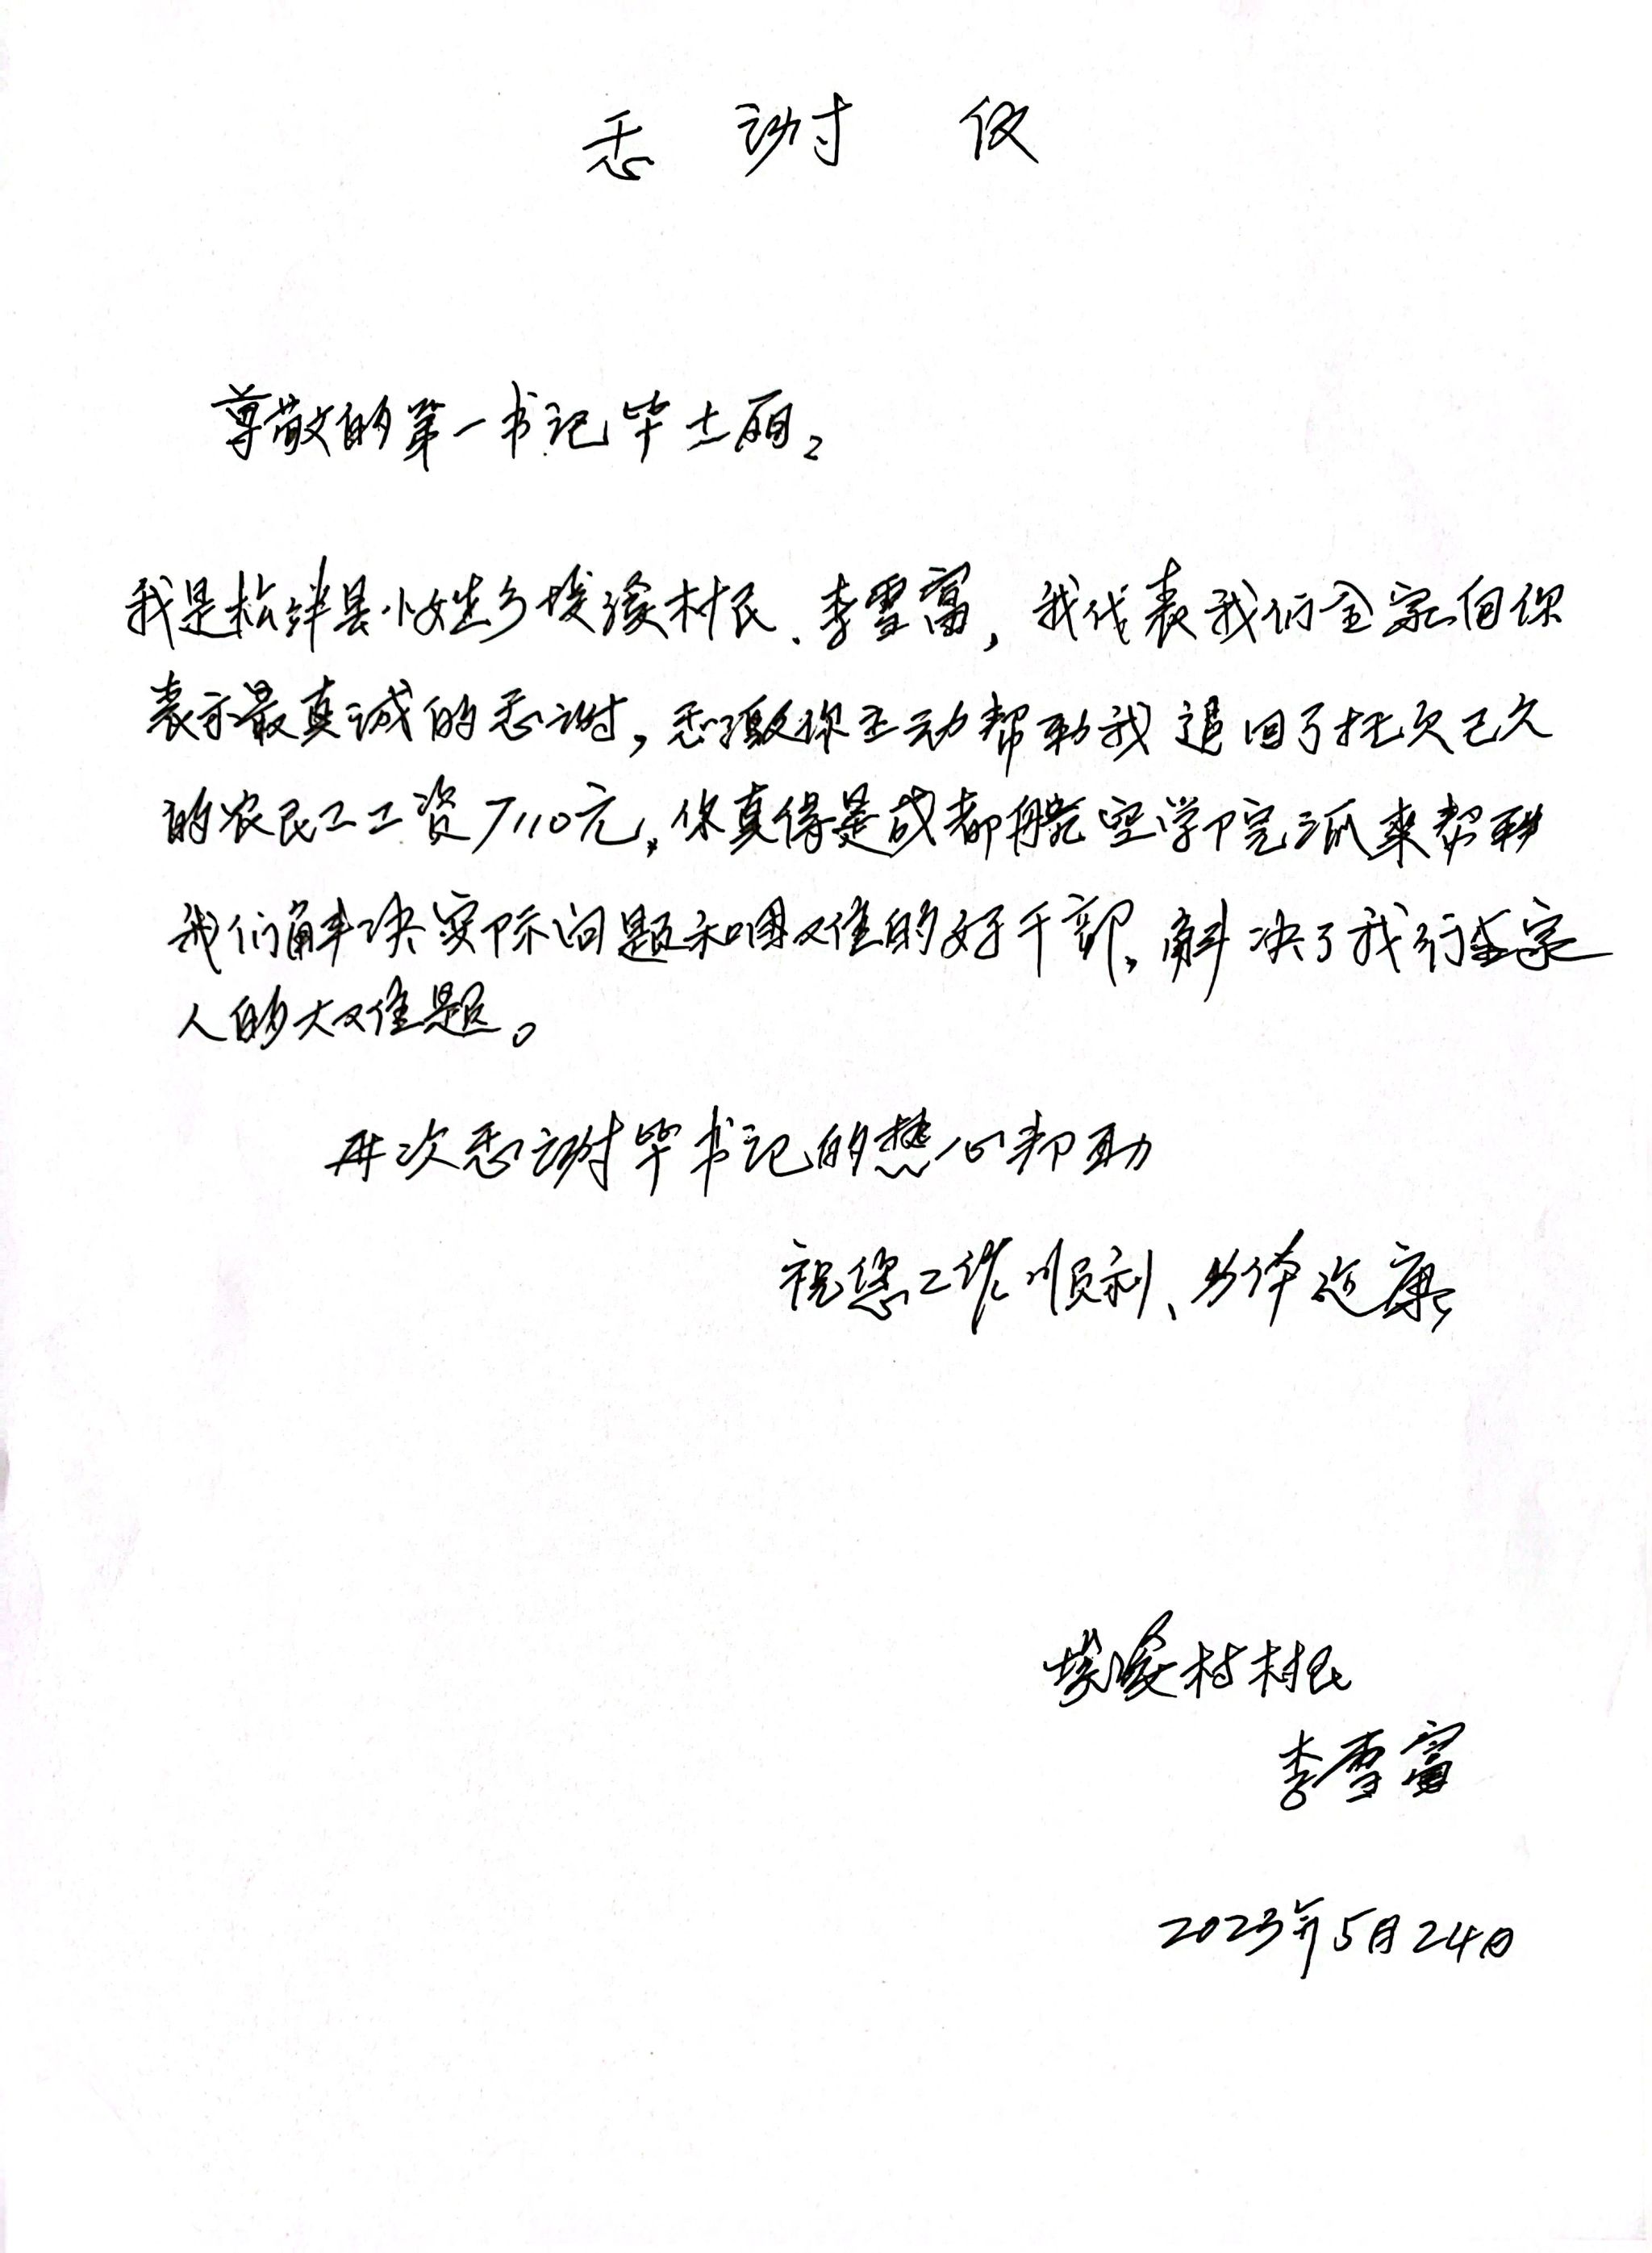 感谢信
尊敬的第一书记毕士丽:
我是松洋县小姓乡埃溪村民、李雪富,我代表我们全家向你
表示最真诚的感谢,感激你主动帮助我追回了拖欠已久
的农民工工资7110元,你真得是成都航空学院派来帮助
我们解决实际问题和困难的好干部,解决了我们全家
人的大难题。
再次感谢毕书记的热心帮助
祝您工作顺利、身体健康
埃溪村村民
李雪富
2023年5月24日